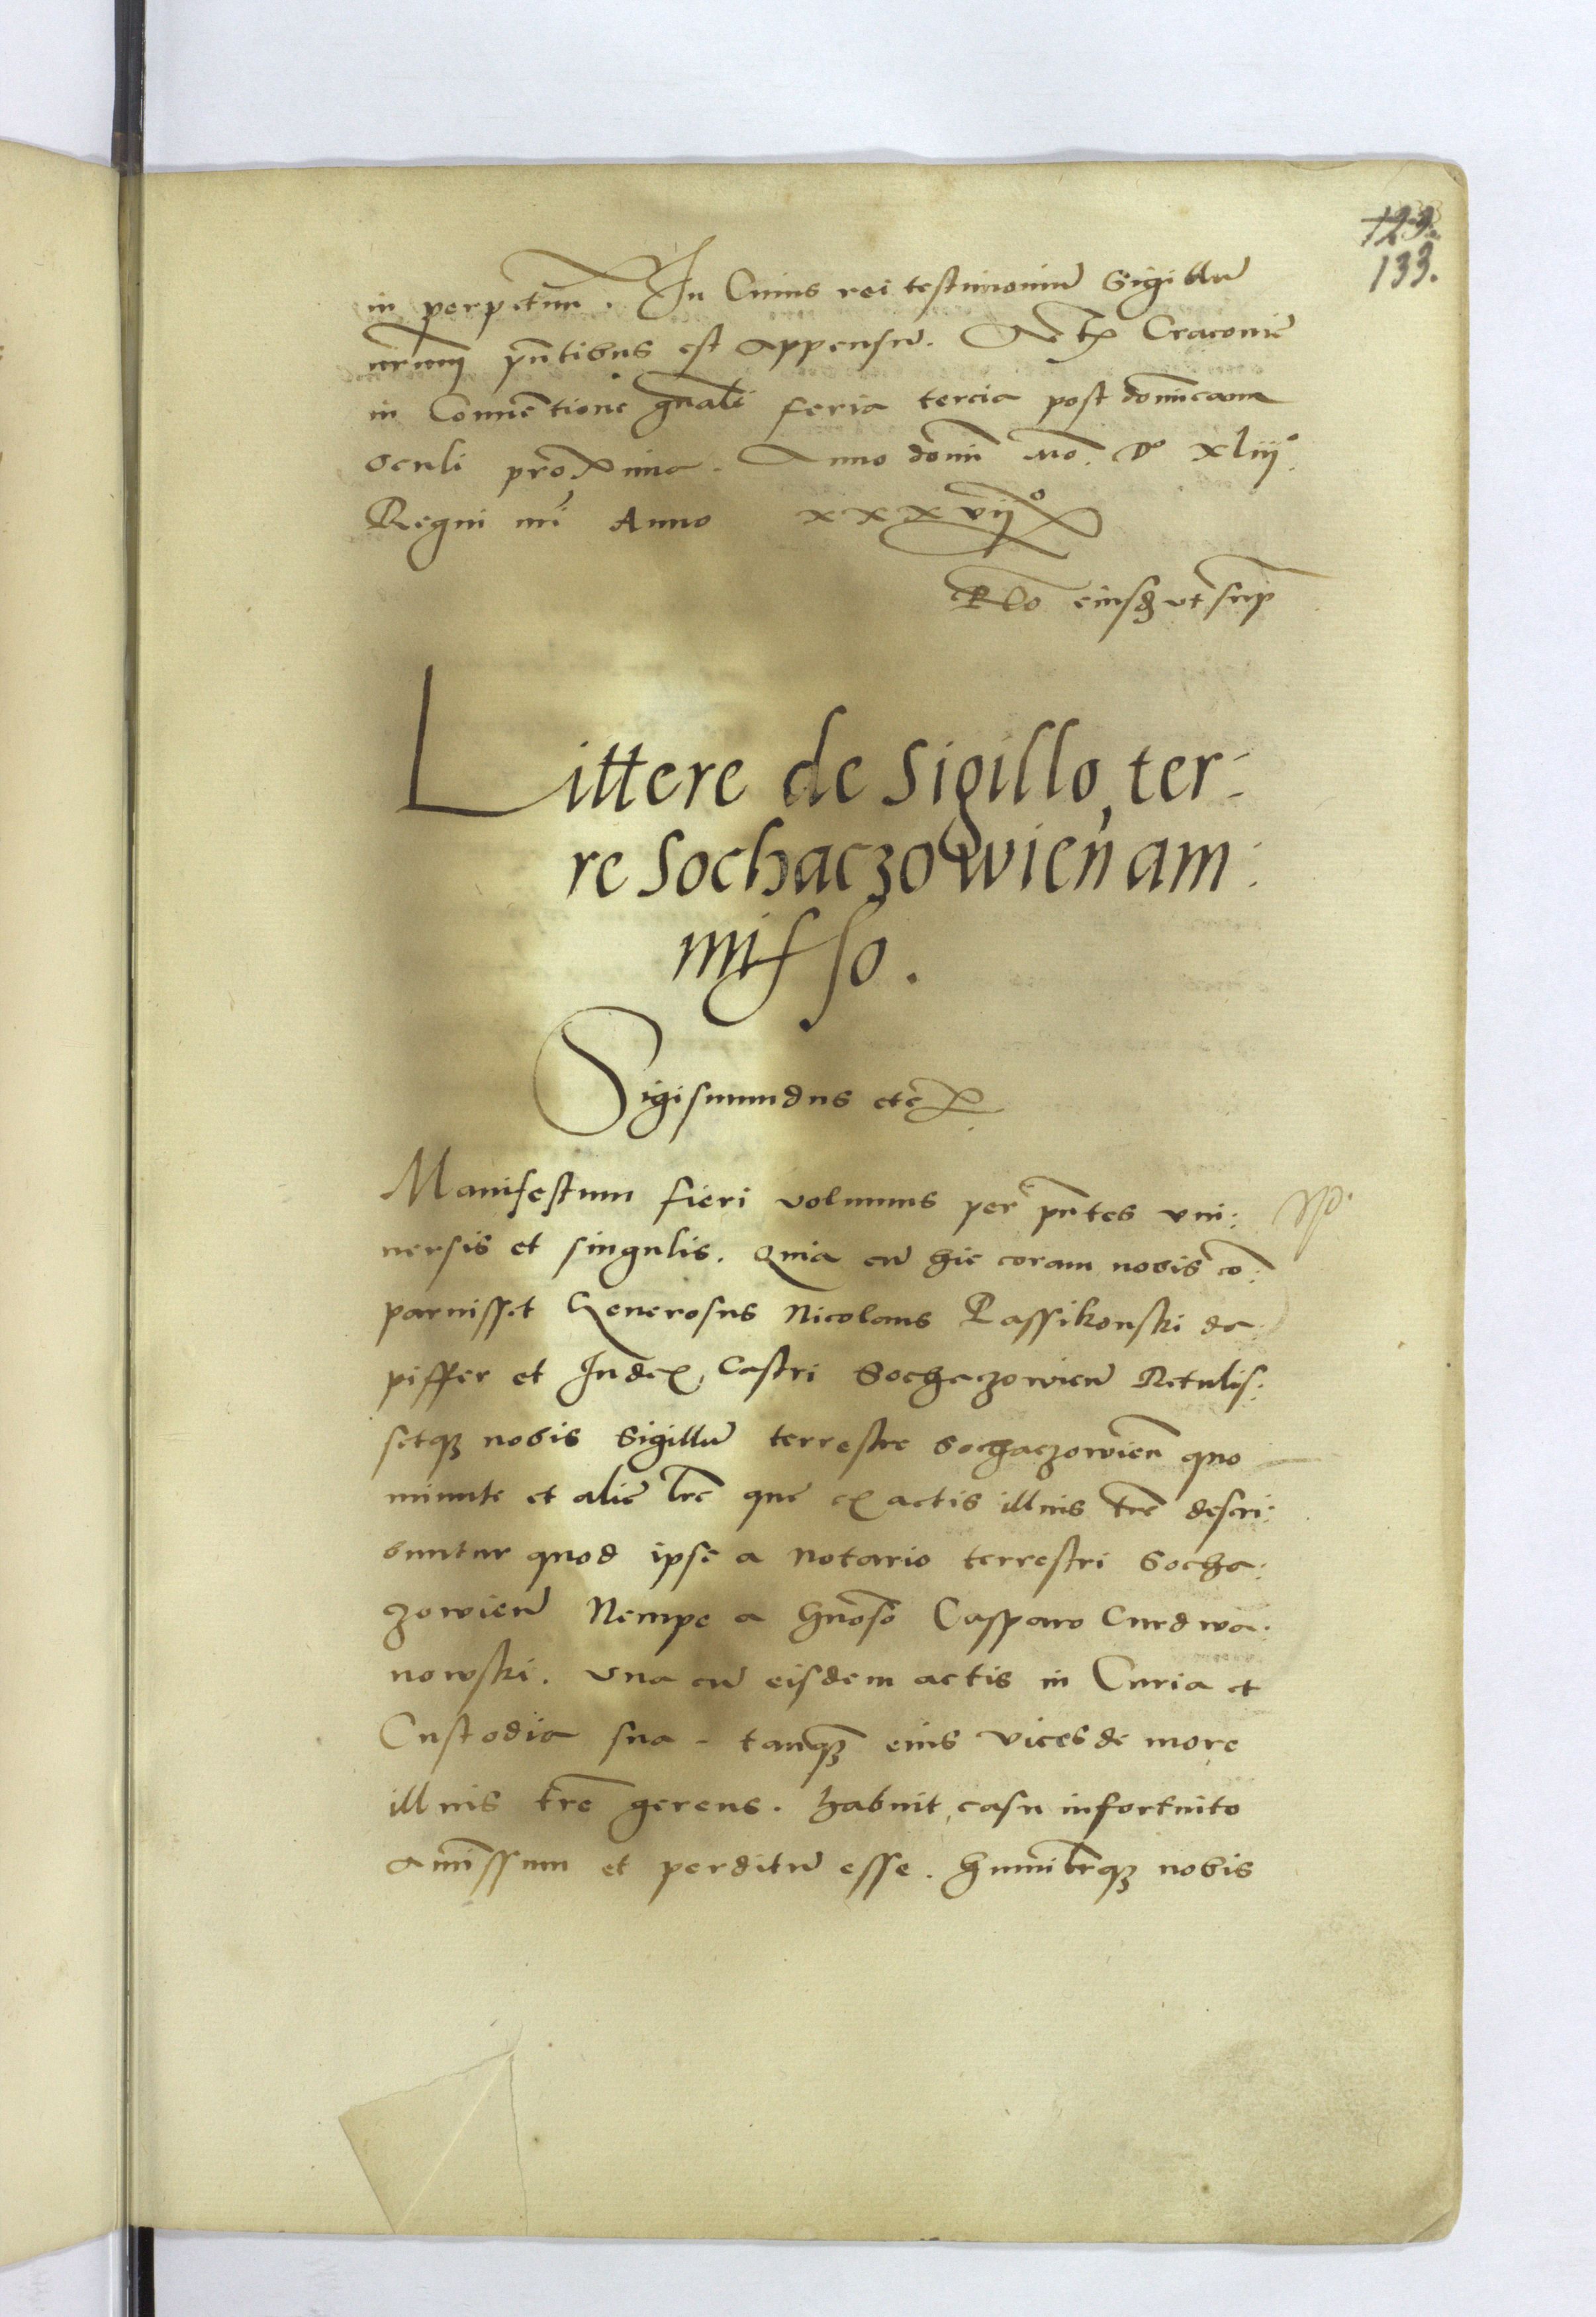 129.
133.
in perpetuū. In Cuius rei testimoniū Sigillū
nr̄um pn̄tibus est appensū. Actū Cracoviē
in Conuētione gn̄ali feria tercia post dominicam
oculi proxima. Anno domī Mo. Do xliijo.
Regni nr̄i Anno xxxvijo
Rlo eiusdē vt sup
Littere de sigillo ter:
re Sochaczowien̄ am:
misso.
Sigismundus etc̄
Manifestum fieri volumus per pn̄tes vni:
uersis et singulis. Quia cū hic coram nobis cō:
paruisset Generosus Nicolaus Passikonski da
piffer et Iudex Castri Sochaczowieñ Retulis:
setqȝ nobis Sigillū terrestre Sochaczowien̄ quo
minute et aliē lr̄e que ex actis illius tr̄e descri:
buntur quod ipse a Notario terrestri Socha:
zowieñ Nempe a Gn̄oso Casparo Curdwa:
nowski. Vna cū eisdem actis in Curia et
Custodia sua tanqȝ eius vices de more
illius tr̄e gerens. habuit, casu infortuito
amissum et perditū esse. Humilr̄qȝ nobis